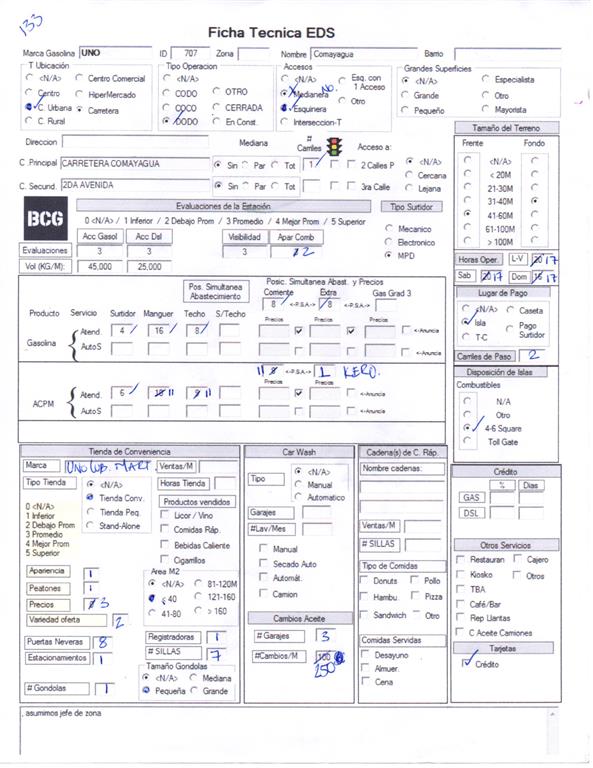 133
Ficha Tecnica EDS
Marca Gasolina UNO ID 707 Zona Nombre Comayagua Barrio
T Ubicación
<N/A> Centro Comercial
Centro HiperMercado
C. Urbana Carretera
C. Rural
Tipo Operacion
<N/A>
CODO OTRO
COCO CERRADA
DODO En Const.
Accesos
<N/A> Esq. con 1 Acceso
Medianera NO.
Esquinera Otro
Interseccion-T
Grandes Superficies
<N/A> Especialista
Grande Otro
Pequeño Mayorista
Direccion Mediana # Carriles Acceso a:
C. Principal CARRETERA COMAYAGUA Sin Par Tot 1 2 Calles P <N/A>
Cercana
C. Secund. 2DA AVENIDA Sin Par Tot 3ra Calle Lejana
Tamaño del Terreno
Frente Fondo
<N/A>
< 20M
21-30M
31-40M
41-60M
61-100M
> 100M
BCG
Evaluaciones de la Estación
0 <N/A> / 1 Inferior / 2 Debajo Prom / 3 Promedio / 4 Mejor Prom / 5 Superior
Acc Gasol Acc Dsl Visibilidad Apar Comb
Evaluaciones 3 3 3 2
Vol (KG/M): 45,000 25,000
Tipo Surtidor
Mecanico
Electronico
MPD
Horas Oper. L-V 17
Sab 17 Dom 17
Pos. Simultanea Abastecimiento
Posic. Simultanea Abast. y Precios
Corriente Extra Gas Grad 3
8 <-P.S.A.-> 8
Producto Servicio Surtidor Manguer Techo S/Techo Precios Precios Precios
Gasolina Atend. 4 16 8 <-Anuncia
AutoS
11 <-P.S.A.-> 1 KERO.
Precios Precios
ACPM Atend. 6 11 11 <-Anuncia
AutoS <-Anuncia
Lugar de Pago
<N/A> Caseta
Isla Pago Surtidor
T-C
Carriles de Paso 2
Disposición de Islas
Combustibles
N/A
Otro
4-6 Square
Toll Gate
Tienda de Conveniencia
Marca Ventas/M
Tipo Tienda <N/A> Horas Tienda
Tienda Conv.
Tienda Peq.
Stand-Alone
0 <N/A>
1 Inferior
2 Debajo Prom
3 Promedio
4 Mejor Prom
5 Superior
Productos vendidos
Licor / Vino
Comidas Ráp.
Bebidas Caliente
Cigarrillos
Apariencia 1
Peatones 1
Precios 3
Variedad oferta 2
Area M2
<N/A> 81-120M
< 40 121-160
41-80 > 160
Puertas Neveras 8 Registradoras 1
Estacionamientos 1 # SILLAS 7
# Gondolas 1
Tamaño Gondolas
<N/A> Mediana
Pequeña Grande
Car Wash
Tipo <N/A>
Manual
Automatico
Garajes
#Lav/Mes
Manual
Secado Auto
Automát.
Camion
Cambios Aceite
# Garajes 3
#Cambios/M 100
250
Cadena(s) de C. Ráp.
Nombre cadenas:
Ventas/M
# SILLAS
Tipo de Comidas
Donuts Pollo
Hambu. Pizza
Sandwich Otro
Comidas Servidas
Desayuno
Almuer.
Cena
Crédito
% Dias
GAS
DSL
Otros Servicios
Restauran Cajero
Kiosko Otros
TBA
Café/Bar
Rep Llantas
C Aceite Camiones
Tarjetas
Crédito
, asumimos jefe de zona